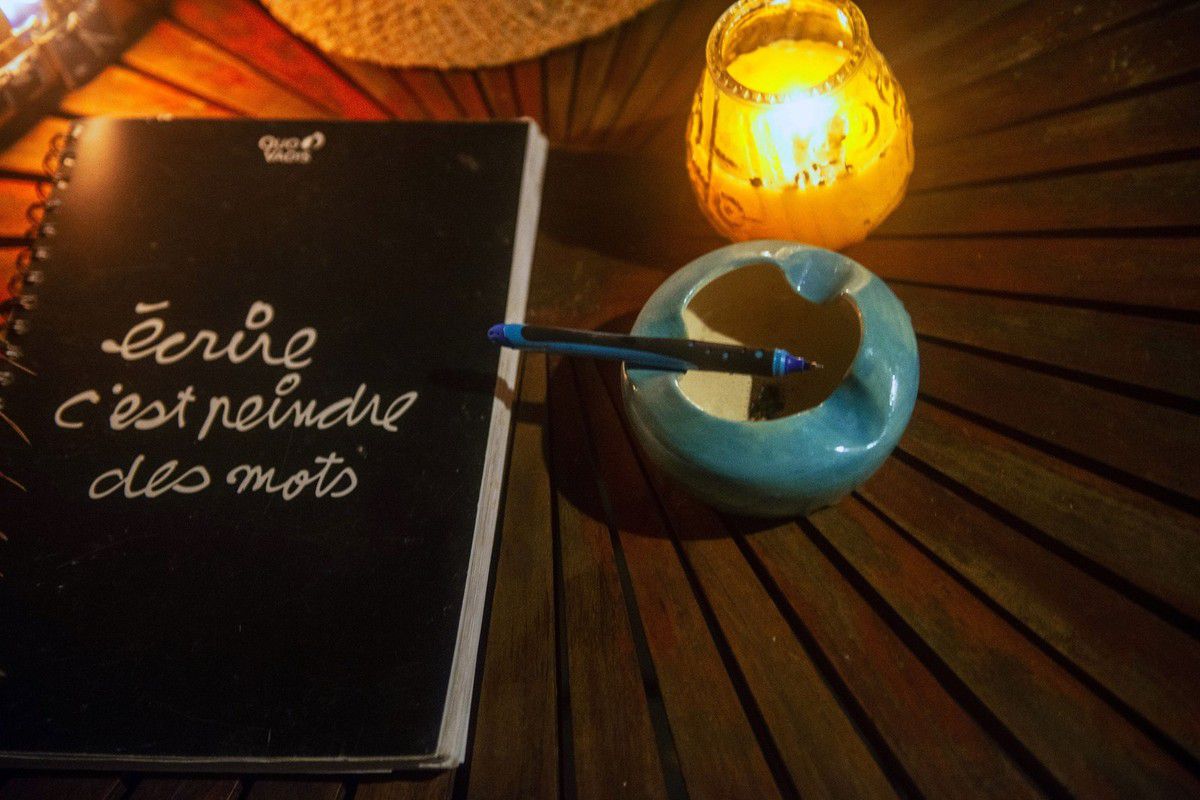 QUO
VADIS
écrire
c'est peindre
des mots